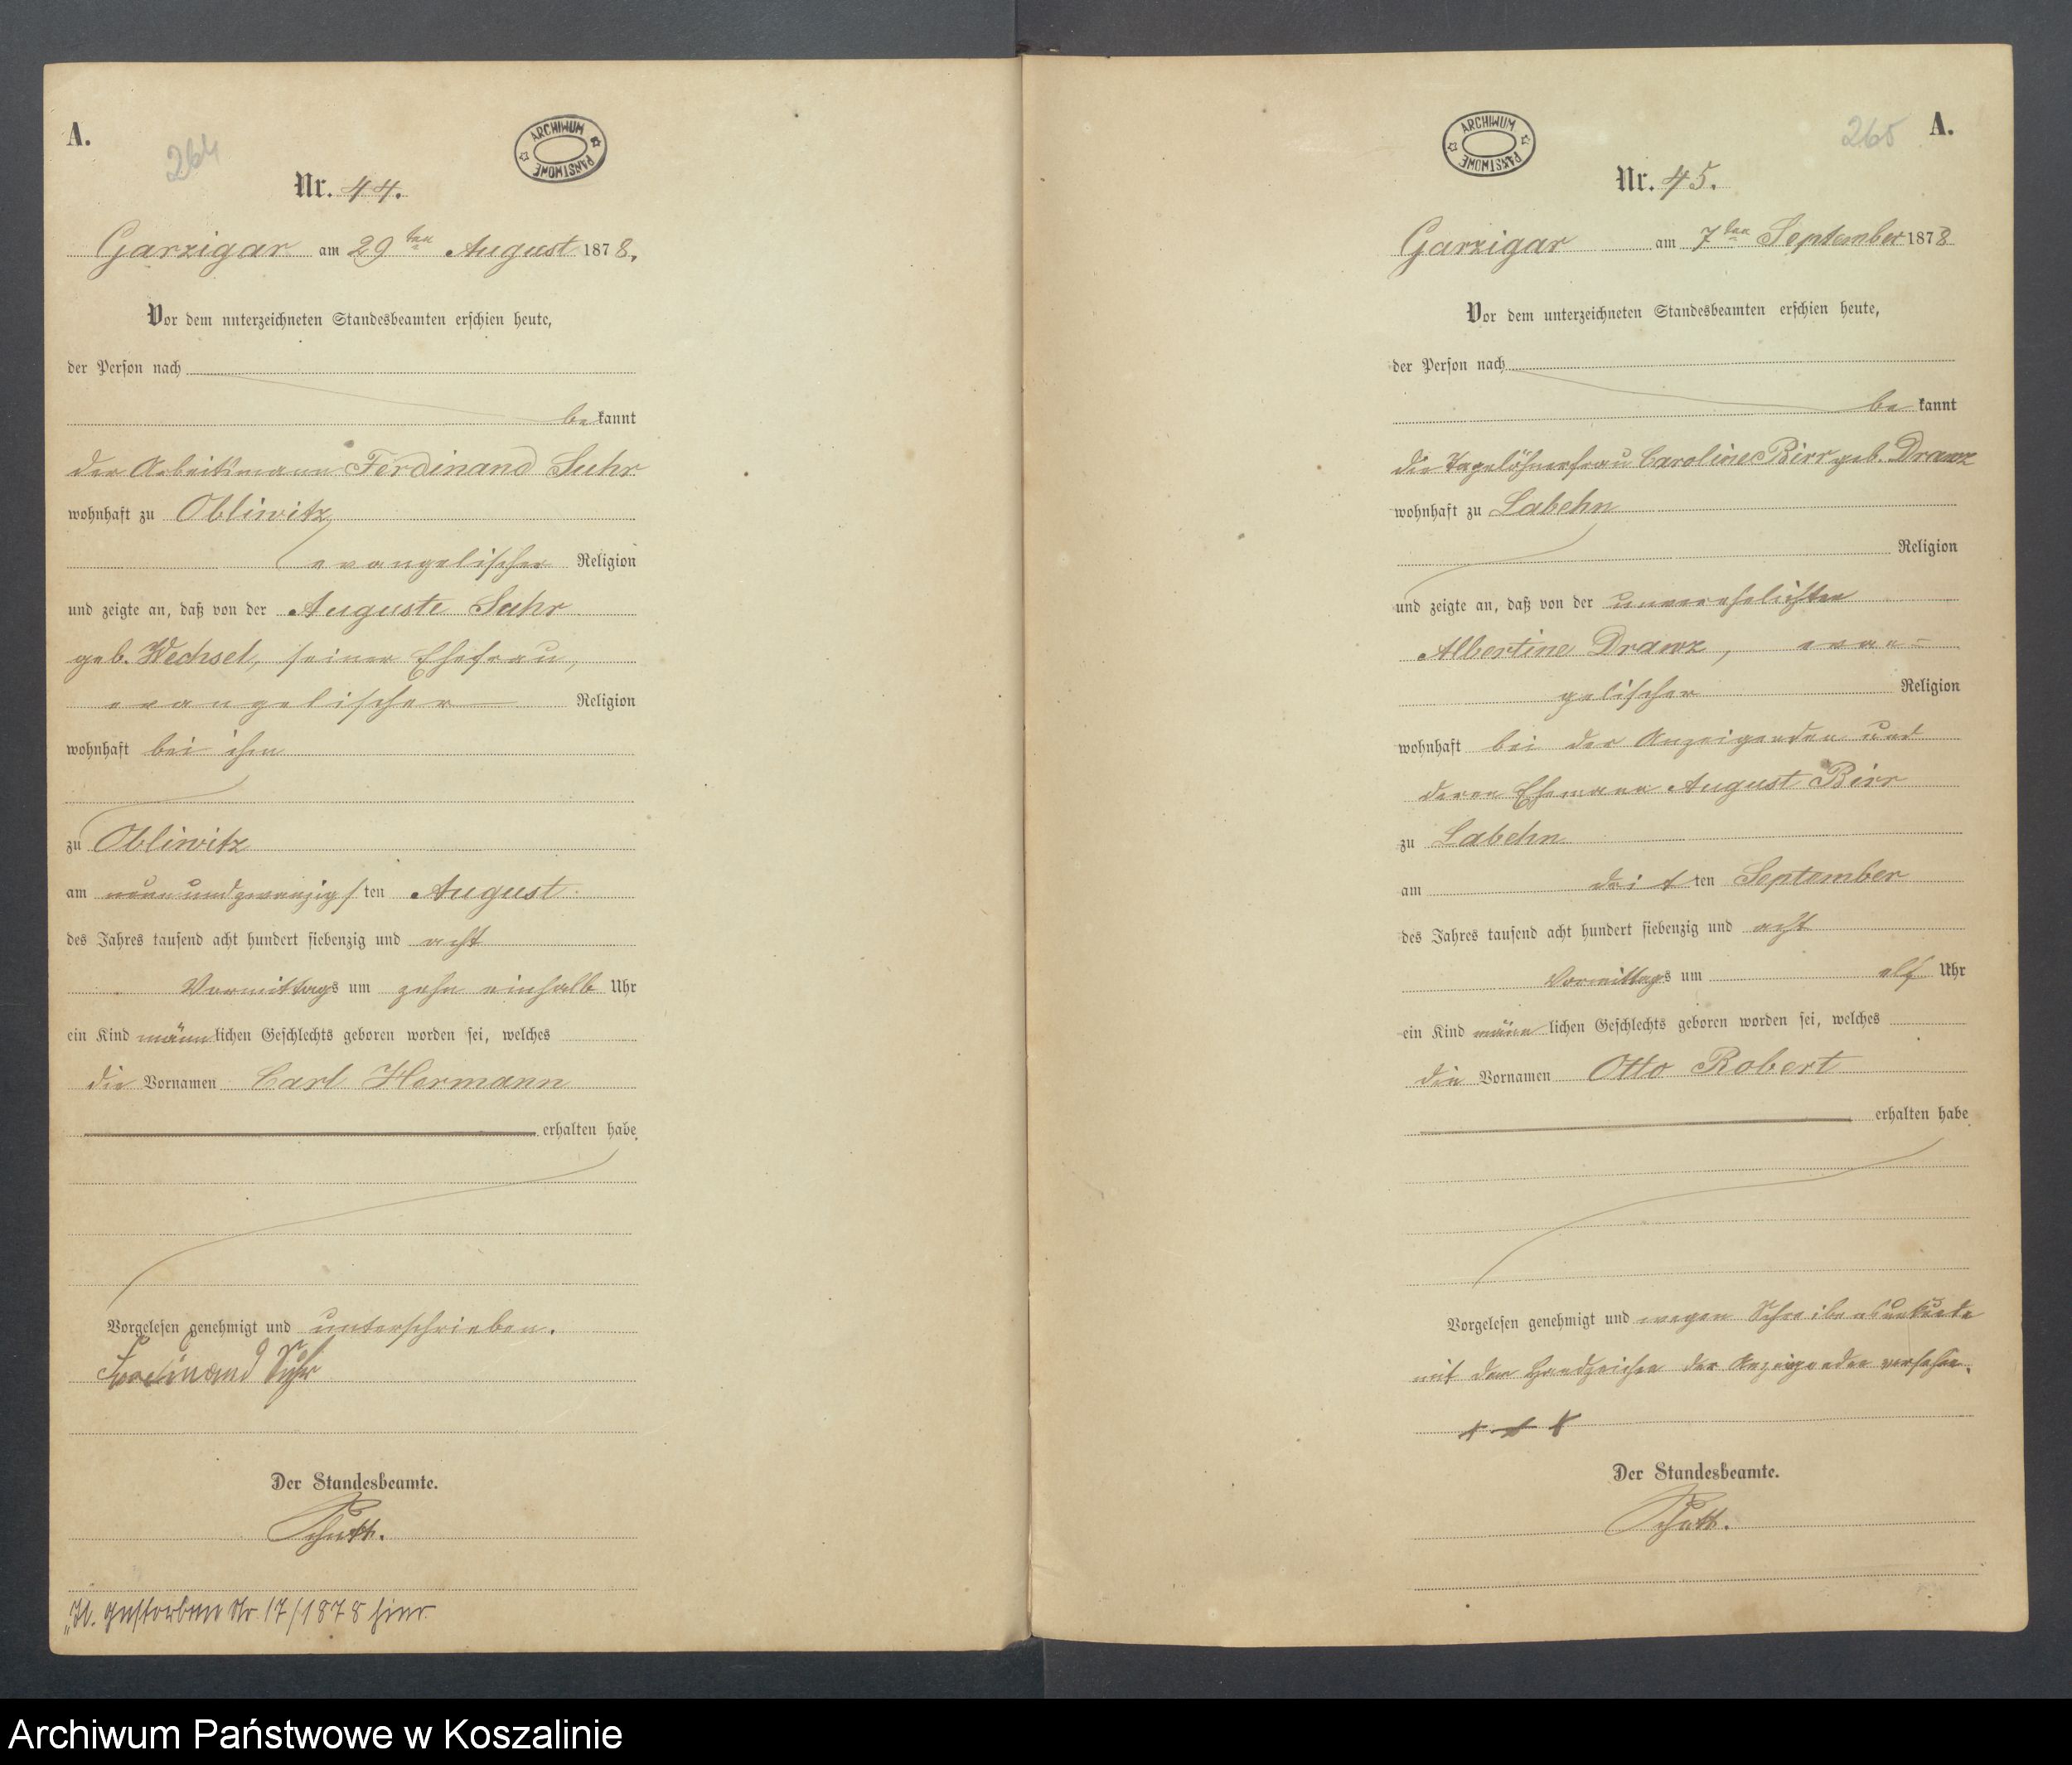 A.
264
ARCHIWUM PAŃSTWOWE
Nr. 44.
Garzigar am 29ten August 1878.
Vor dem unterzeichneten Standesbeamten erschien heute,
der Person nach
bekannt
der Arbeitsmann Ferdinand Suhr
wohnhaft zu Obliwitz
evangelischer Religion
und zeigte an, daß von der Auguste Suhr
geb. Wechsel, seiner Ehefrau,
evangelischer Religion
wohnhaft bei ihm
zu Obliwitz
am neunundzwanzigsten August
des Jahres tausend acht hundert siebenzig und acht
Vormittags um zehn einhalb Uhr
ein Kind männlichen Geschlechts geboren worden sei, welches
die Vornamen Carl Hermann
erhalten habe.
Vorgelesen genehmigt und unterschrieben.
Ferdinand Suhr
Der Standesbeamte.
gestorben Nr 17/1878 hier
265
A.
ARCHIWUM PAŃSTWOWE
Nr. 45.
Garzigar am 7ten September 1878
Vor dem unterzeichneten Standesbeamten erschien heute,
der Person nach
bekannt
die Tagelöhnerfrau Caroline Birr geb. Drawz
wohnhaft zu Labehn
Religion
und zeigte an, daß von der unverehelichten
Albertine Drawz, evan-
gelischer Religion
wohnhaft bei der Anzeigenden und
deren Ehemann August Birr
zu Labehn
am dritten September
des Jahres tausend acht hundert siebenzig und acht
Vormittags um elf Uhr
ein Kind männlichen Geschlechts geboren worden sei, welches
die Vornamen Otto Robert
erhalten habe.
Vorgelesen genehmigt und wegen Schreibensunkunde
mit dem Handzeichen der Anzeigenden versehen.
+ + +
Der Standesbeamte.
Archiwum Państwowe w Koszalinie